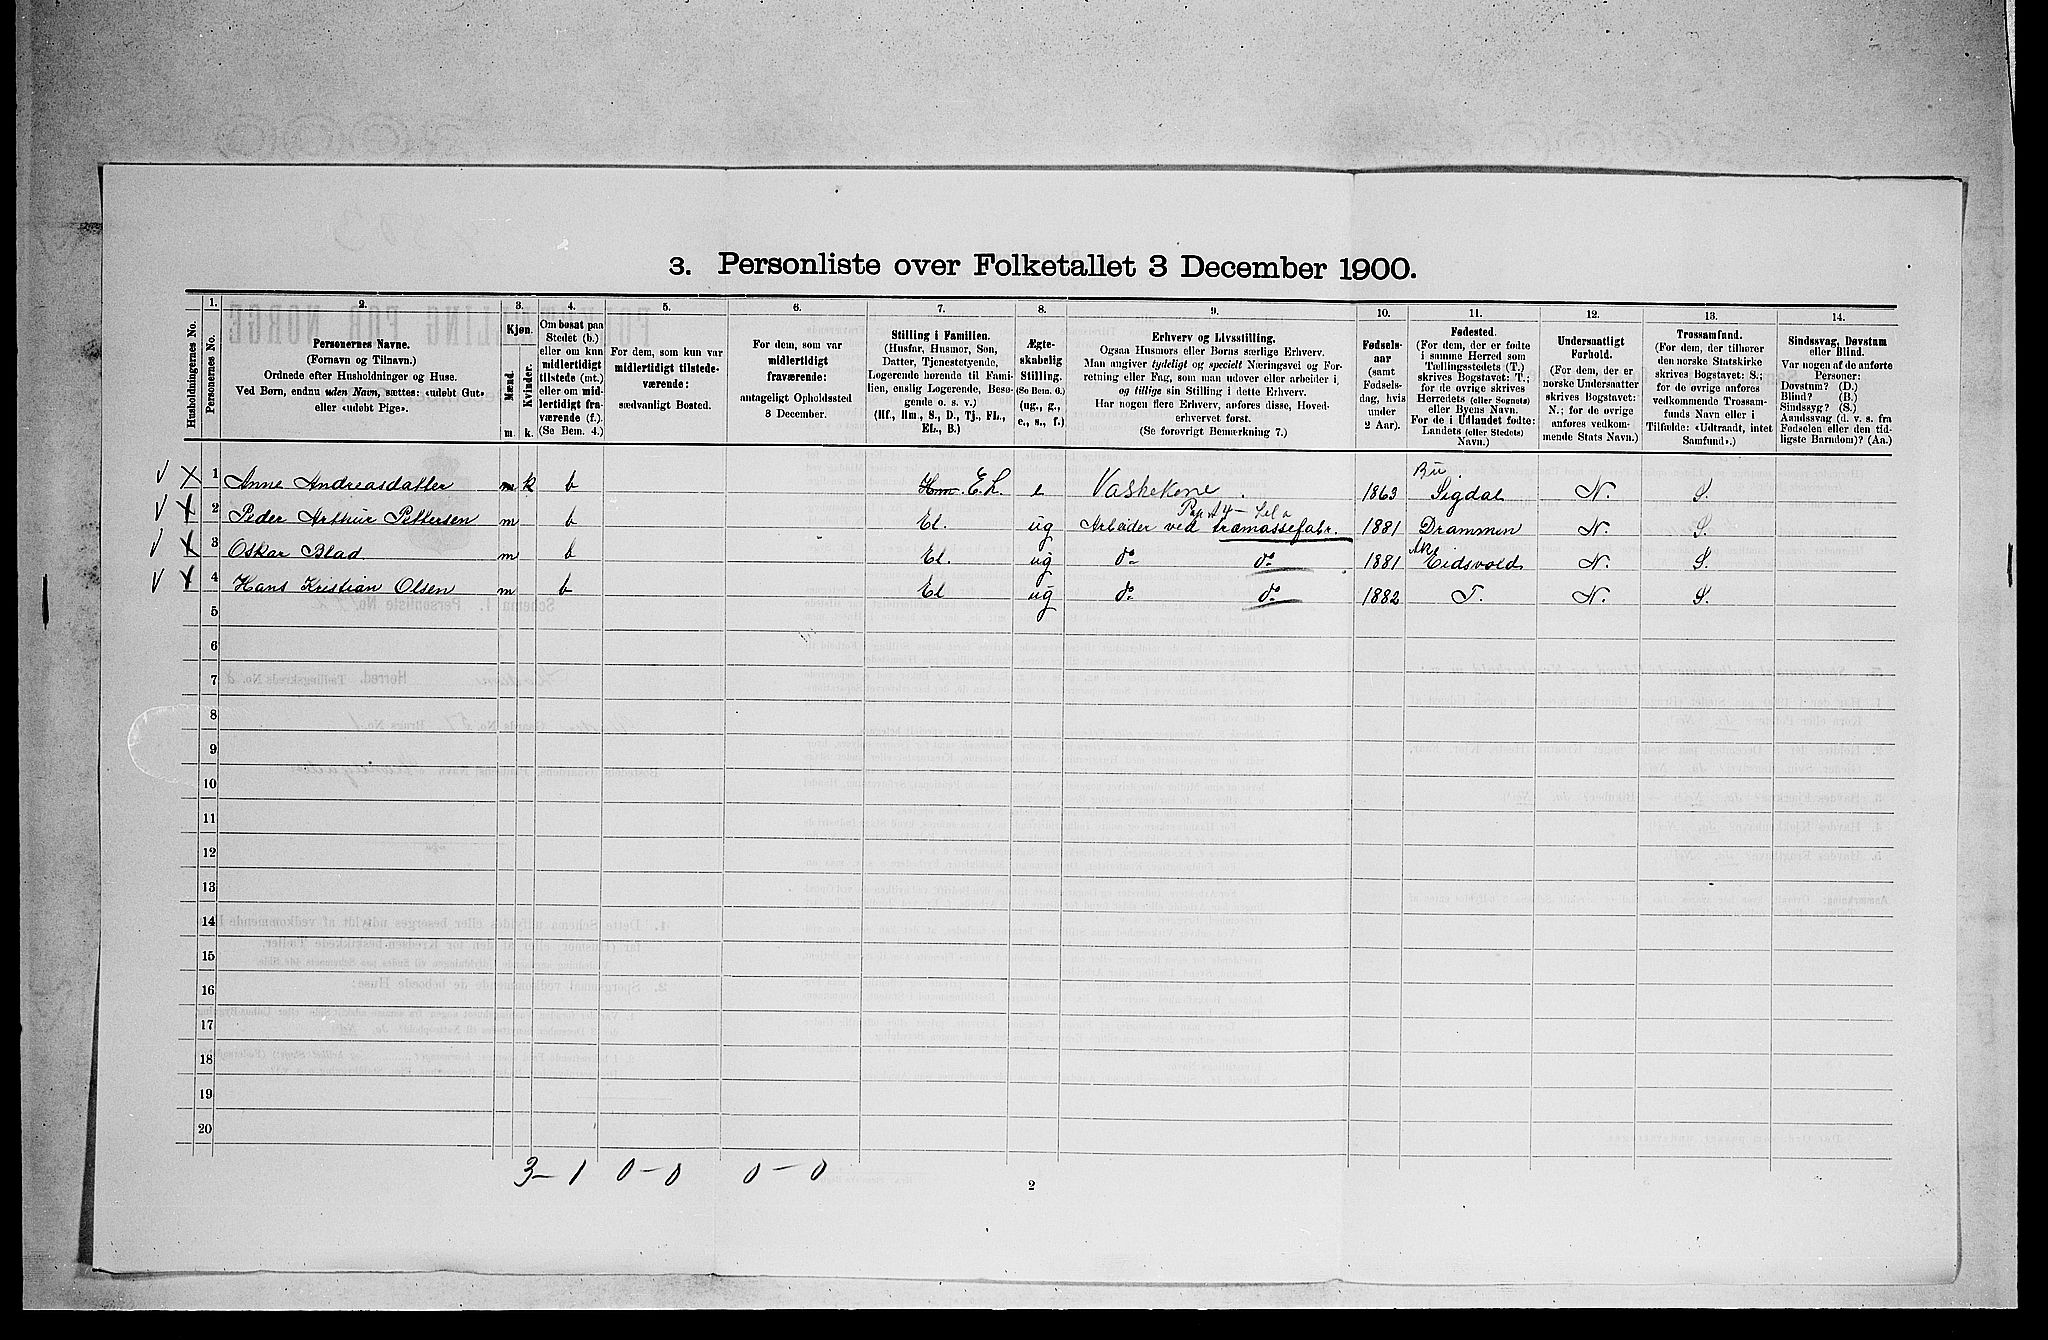 3. Personliste over Folketallet 3 December 1900.
Husholdningernes No.
1.
Personernes No.
2.
Personernes Navne.
(Fornavn og Tilnavn.)
Ordnede efter Husholdninger og Huse.
Ved Børn, endnu uden Navn, sættes: «udøbt Gut»
eller «udøbt Pige».
3.
Kjøn.
Mænd.
Kvinder.
m.
k.
4.
Om bosat paa
Stedet (b.)
eller om kun
midlertidigt
tilstede (mt.)
eller om mid-
lertidigt fra-
værende (f.).
(Se Bem. 4.)
5.
For dem, som kun var
midlertidigt tilstede-
værende:
sædvanligt Bosted.
6.
For dem, som var
midlertidigt
fraværende:
antageligt Opholdssted
3 December.
7.
Stilling i Familien.
(Husfar, Husmor, Søn,
Datter, Tjenestetyende,
Logerende hørende til Fami-
lien, enslig Logerende, Besø-
gende o. s. v.)
(Hf., Hm., S., D., Tj., FL.,
EL., B.)
8.
Ægte-
skabelig
Stilling.
(Se Bem. 6.)
(ug., g.,
e., s., f.)
9.
Erhverv og Livsstilling.
Ogsaa Husmors eller Børns særlige Erhverv.
Man angiver tydeligt og specielt Næringsvei og For-
retning eller Fag, som man udøver eller arbeider i,
og tillige sin Stilling i dette Erhverv.
Har nogen flere Erhverv, anføres disse, Hoved-
erhvervet først.
(Se forøvrigt Bemærkning 7.)
10.
Fødsels-
aar
(samt
Fødsels-
dag, hvis
under
2 Aar).
11.
Fødested.
(For dem, der er fødte
i samme Herred som
Tællingsstedets (T.)
skrives Bogstavet: T.;
for de øvrige skrives
Herredets (eller Sognets)
eller Byens Navn.
For de i Udlandet fødte:
Landets (eller Stedets)
Navn.)
12.
Undersaatligt
Forhold.
(For dem, der er
norske Undersaatter
skrives Bogstavet:
N.; for de øvrige
anføres vedkom-
mende Stats Navn.)
13.
Trossamfund.
(For dem, der tilhører
den norske Statskirke
skrives Bogstavet: S.;
for de øvrige anføres
vedkommende Trossam-
funds Navn eller i
Tilfælde: «Udtraadt, intet
Samfund».)
14.
Sindssvag, Døvstum
eller Blind.
Var nogen af de anførte
Personer:
Døvstum? (D.)
Blind? (B.)
Sindssyg? (S.)
Aandssvag (d. v. s. fra
Fødselen eller den tid-
ligste Barndom)? (Aa.)
Bu
1 Anne Andreasdatter m k b Hm. E.L. e Vaskekone. 1863 Sigdal N. S.
2 Peder Arthur Pettersen m b El. ug Arbeider ved træmassefabr. 1881 Drammen N. S.
Ak
3 Oskar Blad m b El. ug do do 1881 Eidsvold N. S.
4 Hans Kristian Olsen m b El ug do do 1882 T. N. S.
5
6
7
8
9
10
11
12
13
14
15
16
17
18
19
20
3-1 0-0 0-0
2